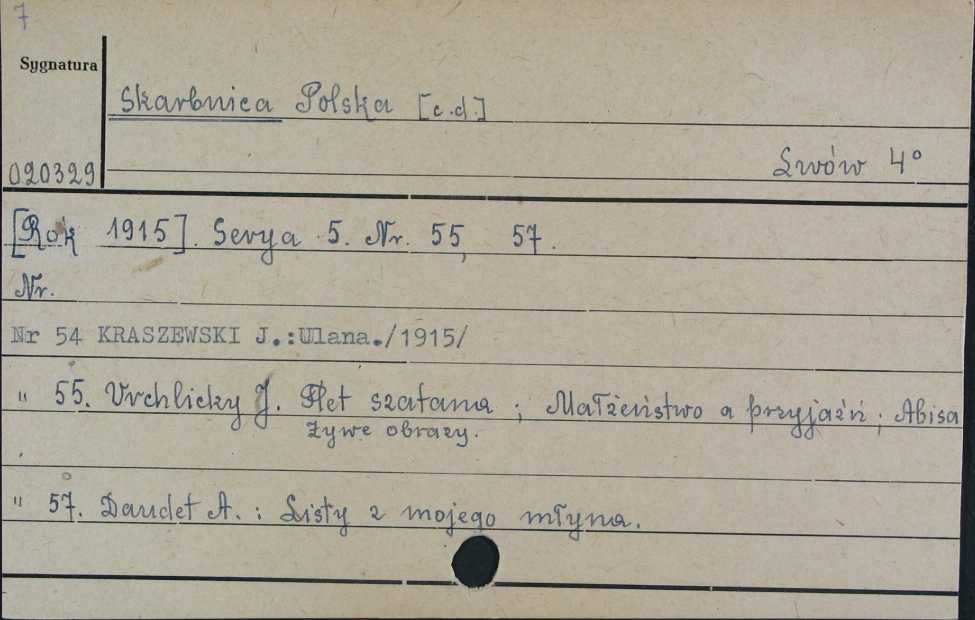 7
Sygnatura
Skarbnica Polska [c.d.]
020329
Lwów 4°
[Rok 1915]. Serya 5. Nr. 55, 57.
Nr.
Nr 54 KRASZEWSKI J.:Ulana./1915/
" 55. Vrchlicky J. Flet szatana ; Małżeństwo a przyjaźń ; Abisa
Żywe obrazy.
" 57. Daudet A. : Listy z mojego młyna.